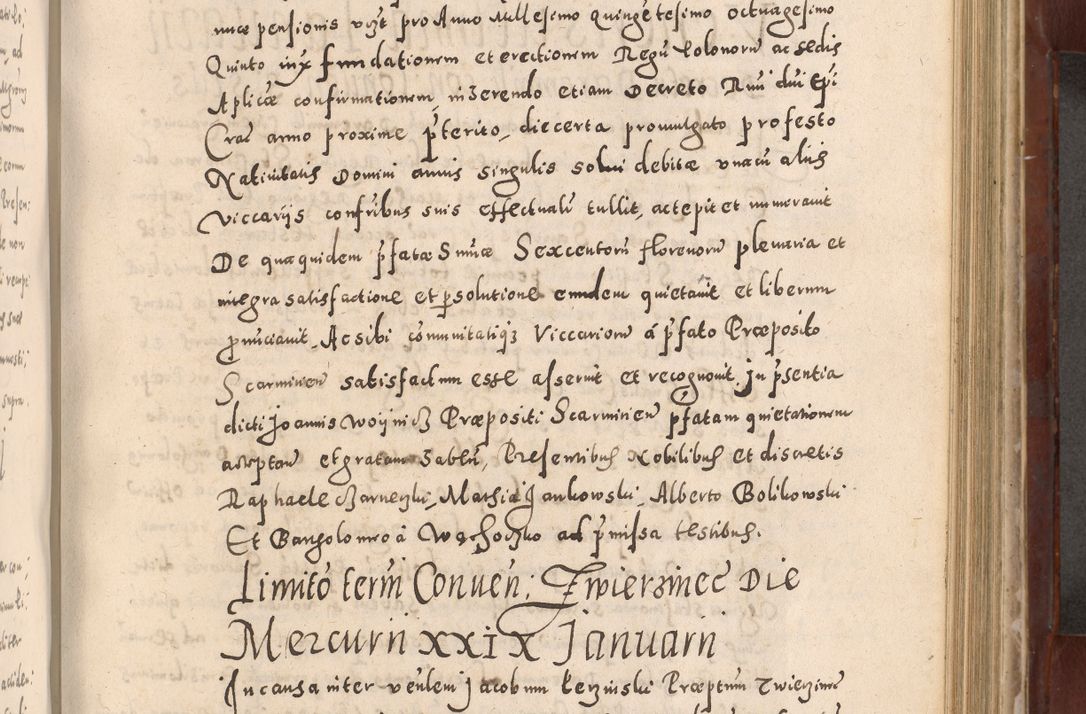 nuce pensionis vz̃t pro Anno Millesimo quingetesimo octuagesimo
Quinto iux fundationem et erectionem Regũ Polonorũ ac sedis
Aplicæ confirmationem, inserendo etiam Decreto Rmi dni Ep̃i
Crac̃ anno proxime p̃terito, die certa promulgato pro festo
Nativitatis Domini annis singulis solui debitæ vnacũ aliis
Viccarijs confribus suis effectualr̃ tullit, accepit et numeravit
De qua quidem p̃fatæ Sum̃æ Sexcentorũ florenorũ plenaria et
integra satisfactione et p̱solutione eundem quietavit et liberum
p̱nũciavit, Ac sibi com̃unitatiq₃ Viccariorũ á p̃fato Præposito
Scarmirien̄ satisfactum esse asseruit et recognovit. In p̃sentia
dicti Joannis Woynicz Præpositi Scarmirien̄ p̃fatam quietationem
acceptam et gratam habẽn̄, Presentibus Nobilibus et discretis
Raphaele Czarneczki, Mathia Jankowski, Alberto Bolikowski
Et Bartholomeo á Wochoczko ad p̃missa testibus.
Limitõ term̃ Conuen̄: Zwierzinec̃ Die
Mercurii XXIX Januarii
In causa inter ven̄lem Jacobum Łerzinski Præptum Zwierzinec̃